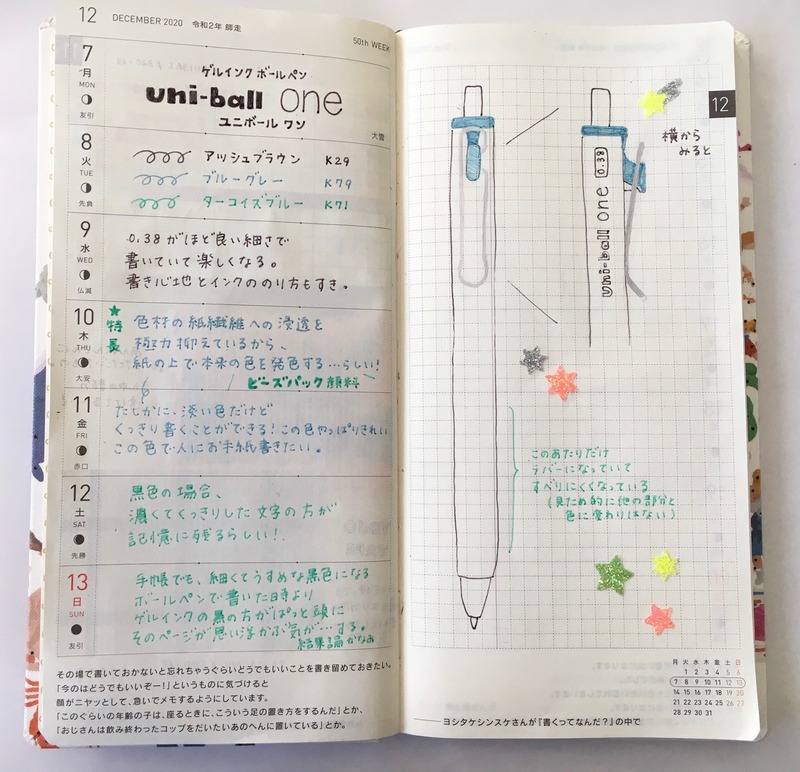 12 DECEMBER 2020 令和2年 師走
50th WEEK
7
月
MON
友引
ゲルインク ボールペン
uni-ball one
ユニボール ワン
大雪
8
火
TUE
先負
アッシュブラウン K29
ブルーグレー K79
ターコイズブルー K71
9
水
WED
仏滅
0.38がほど良い細さで
書いていて楽しくなる。
書き心地とインクののり方もすき。
10
木
THU
大安
★特長
色材の紙繊維への浸透を
極力抑えているから、
紙の上で本来の色を発色する…らしい!
ビーズパック顔料
11
金
FRI
赤口
たしかに、淡い色だけど
くっきり書くことができる!この色やっぱりきれい
この色で人にお手紙書きたい。
12
土
SAT
先勝
黒色の場合、
濃くてくっきりした文字の方が
記憶に残るらしい!
13
日
SUN
友引
手帳でも、細くてうすめな黒色になる
ボールペンで書いた日時より
ゲルインクの黒の方がぱっと頭に
そのページが思い浮かぶ気が…する。
結果論かなぁ
その場で書いておかないと忘れちゃうぐらいどうでもいいことを書き留めておきたい。
「今のはどうでもいいぞー!」というものに気づけると
顔がニヤッとして、急いでメモするようにしています。
「このぐらいの年齢の子は、座るときに、こういう足の置き方をするんだ」とか、
「おじさんは飲み終わったコップをだいたいあのへんに置いている」とか。
12
横から
みると
uni-ball one 0.38
このあたりだけ
ラバーになっていて
すべりにくくなっている
(見ため的に他の部分と
色に変わりはない)
月 火 水 木 金 土 日
1 2 3 4 5 6
7 8 9 10 11 12 13
14 15 16 17 18 19 20
21 22 23 24 25 26 27
28 29 30 31
——ヨシタケシンスケさんが『書くってなんだ?』の中で